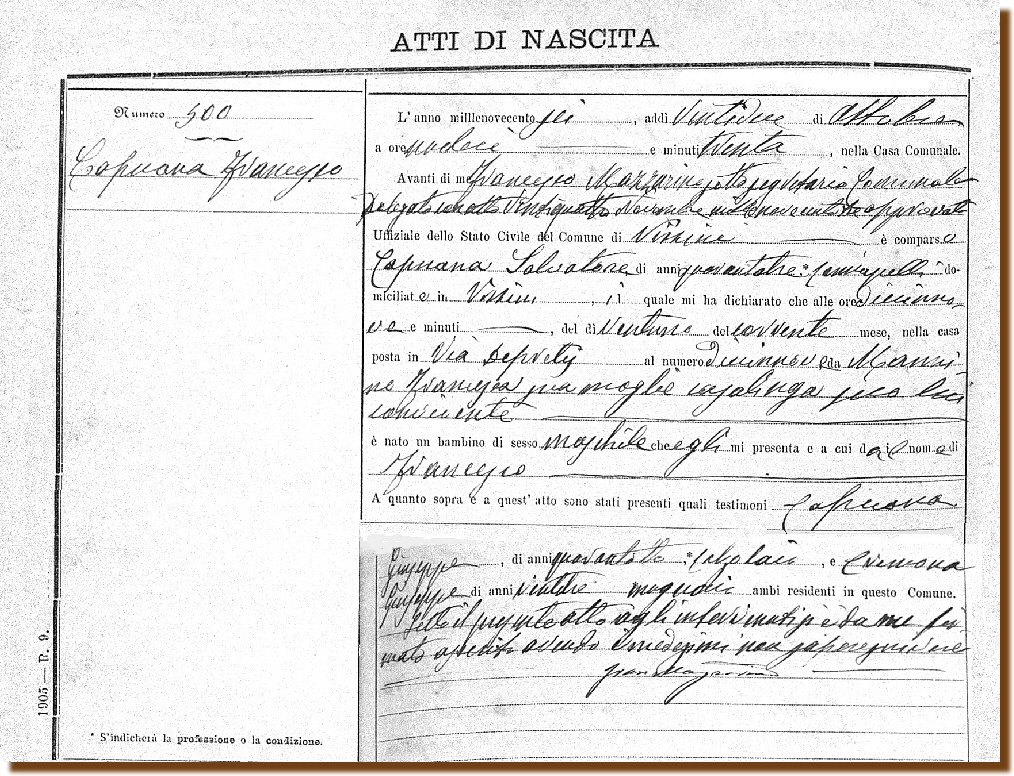 ATTI DI NASCITA
Numero 500
Capuana Francesco
L'anno milllenovecento sei , addi ventidue di Ottobre
a ore undici e minuti trenta , nella Casa Comunale.
Avanti di me Francesco Mazzarino sotto segretario Comunale
Delegato con atto ventiquattro Novembre mille novecento tre approvato
Uffiziale dello Stato Civile del Comune di Vizzini è comparso
Capuana Salvatore di anni quarantatre * do-
miciliato in Vizzini , il quale mi ha dichiarato che alle ore diciannо-
ve e minuti , del dì ventuno del corrente mese, nella casa
posta in Via Depretis al numero Diciannove da Manci-
ne Francesca sua moglie casalinga seco lui
convivente
è nato un bambino di sesso maschile che egli mi presenta e a cui dà il nome di
Francesco
A quanto sopra e a quest'atto sono stati presenti quali testimoni Capuana
Giuseppe , di anni quarantotto * , e Cremona
Giuseppe di anni ventitre ambi residenti in questo Comune.
Letto il presente atto agli intervenuti si è da me fir-
mato avendo i medesimi non sapere scrivere
1905 — P. 9.
* S'indicherà la professione o la condizione.